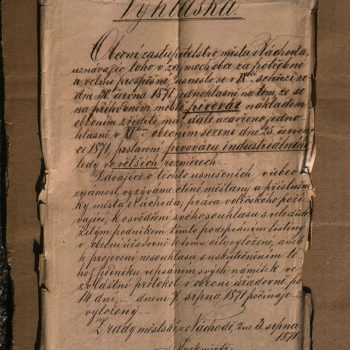 Vyhláška
Obecní zastupitelstvo města Náchoda,
uznávajíc toho v zájmech obce za potřebné
a velmi prospěšné, usneslo se v sezení ze
dne 30. června 1871 jednohlasně na tom, že se
na příhodném místě pivovar nákladem
obecním zříditi má, dále uzavřeno jedno-
hlasně v obecním sezení dne 25. července
1871, postavení pivovaru industrialného
tedy ve větších rozměrech.
Dávajíce o těchto usneseních v obec
známost, vyzýváme ctěné měšťany a příslušní-
ky města Náchoda, práva volebního poží-
vající, k osvědčení svého souhlasu s veledů-
ležitým podnikem tímto podepsáním listiny
v obecní úřadovně k tomu cíli vyložené, aneb
k projevení nesouhlasu s uskutečněním to-
hoto podniku vepsáním svých námitek ve
zvláštní protokol v obecní úřadovně po
14 dní, dnem 7. srpna 1871 počínaje
vyložený.
Z rady městské v Náchodě, dne 3. srpna
1871.